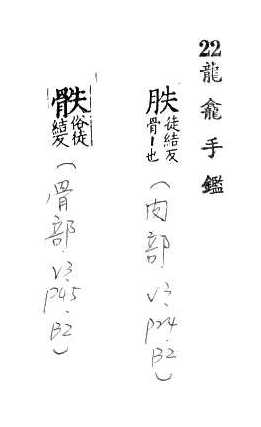 22龍龕手鑑
胅徒結反骨-也(肉部.V3.P24.B2)
䯋俗徒結反(骨部.V3.P45.B2)